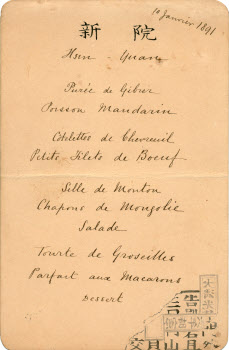 10 Janvier 1891
新 院
Hsin - Yuan
Purée de Gibier
Poisson Mandarin
Côtelettes de Chevreuil
Petits Filets de Boeuf
Selle de Mouton
Chapons de Mongolie
Salade
Tourte de Groseilles
Parfait aux Macarons
Dessert